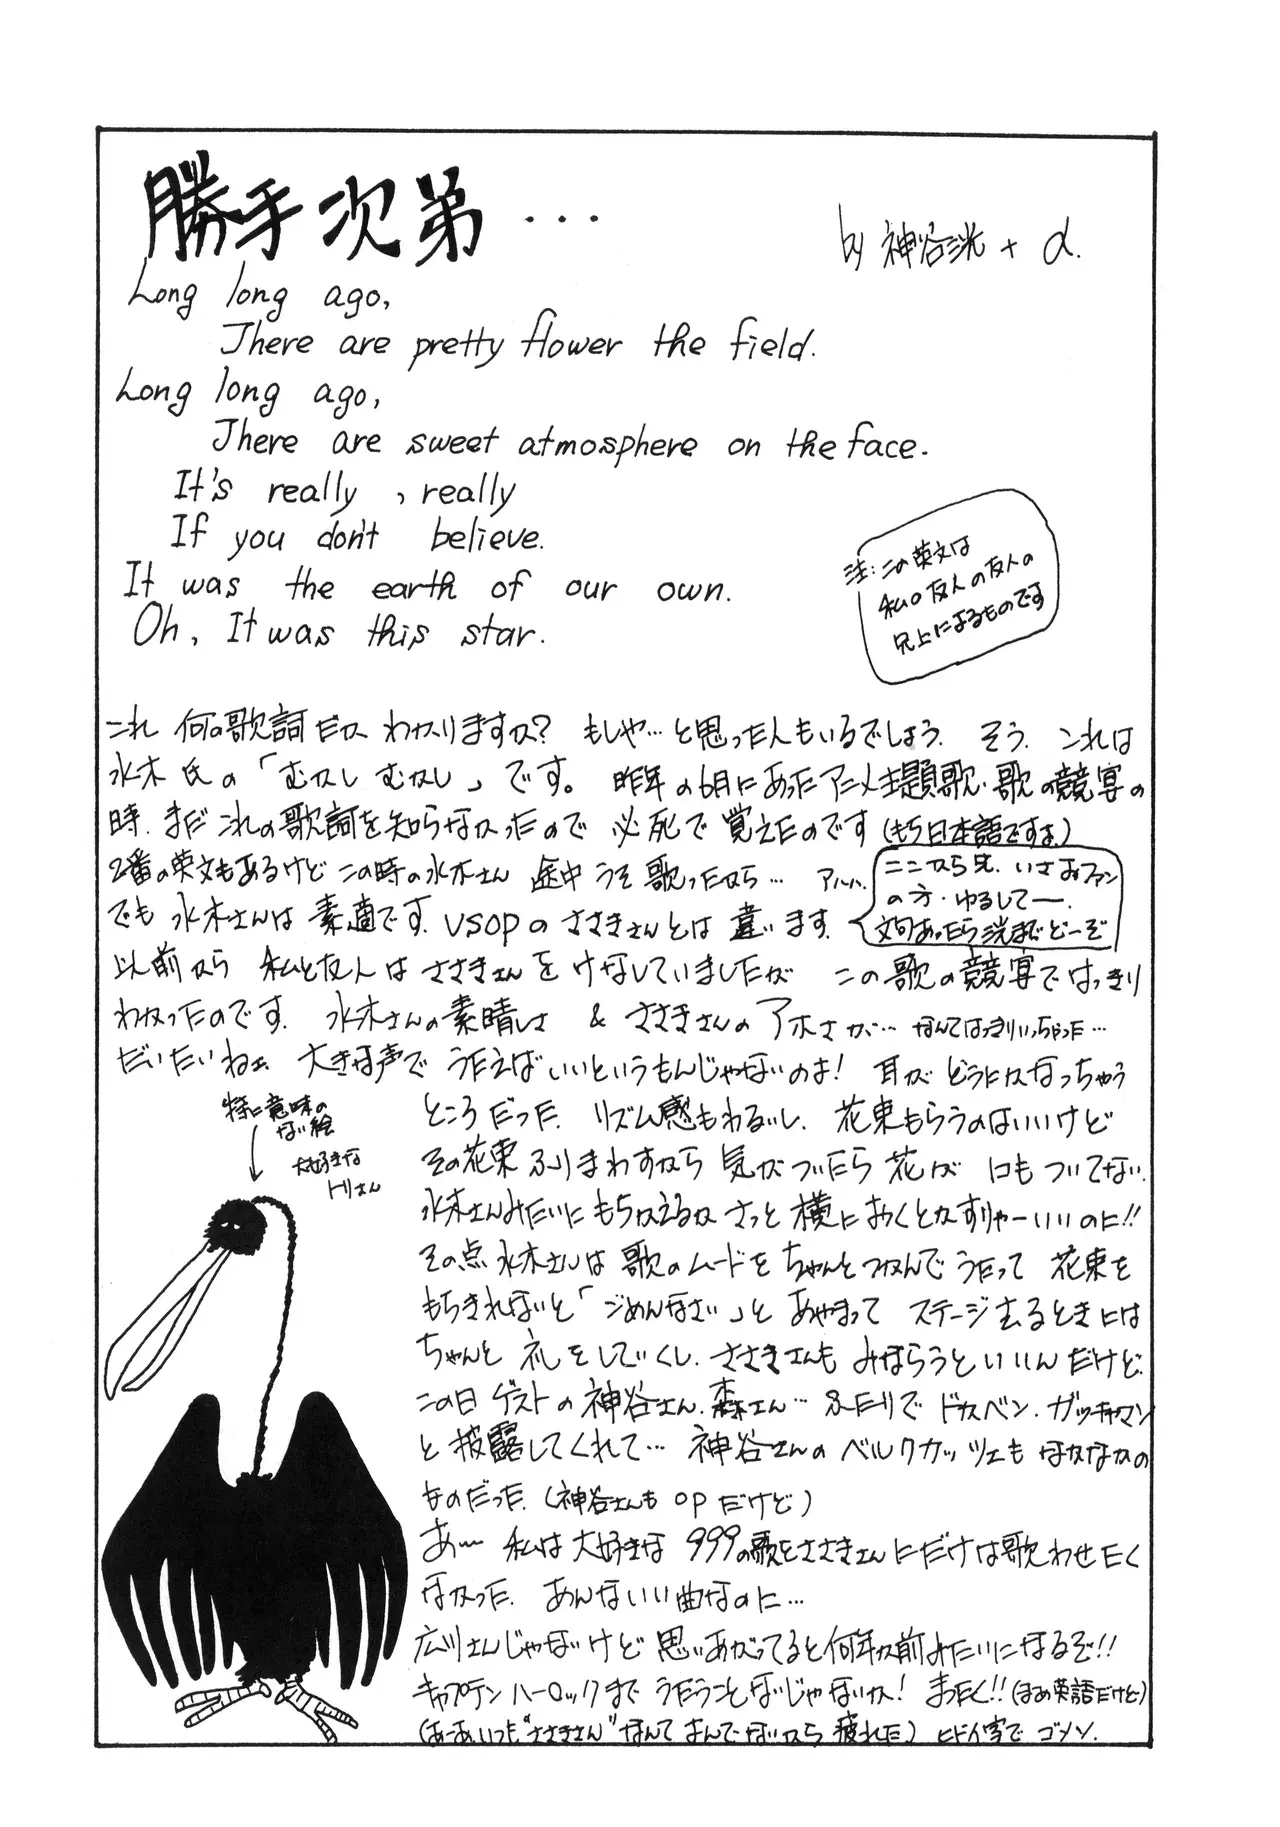 勝手次第…
by 神谷洸 + α.
Long long ago,
There are pretty flower the field.
Long long ago,
There are sweet atmosphere on the face.
It's really , really
If you don't believe.
It was the earth of our own.
Oh, It was this star.
注:この英文は
私の友人の友人の
兄上によるものです
これ 何の歌詞だか わかりますか? もしや…と思った人もいるでしょう. そう. これは
水木氏の「むかし むかし」です。 昨年の6月にあったアニメ主題歌・歌の競宴の
時. まだ これの歌詞を知らなかったので 必死で 覚えたのです (もち日本語ですョ)
2番の英文もあるけど この時の水木さん 途中 うそ 歌ったから… アハハ.
でも 水木さんは 素適です. VSOPの ささきさんとは 違います.
ここから先. いさおファン
の方・ゆるしてー.
文句あったら洸までどーぞ
以前から 私と友人は ささきさんを けなしていましたが この歌の競宴で はっきり
わかったのです. 水木さんの素晴しさ & ささきさんの アホさが… なんてはっきりいっちゃった…
だいたいねェ. 大きな声で うたえばいいというもんじゃないのよ! 耳が どうにかなっちゃう
ところだった. リズム感もわるいし. 花束もらうのはいいけど
その花束 ふりまわすから 気がついたら 花が 1コもついてない.
水木さんみたいに もちかえるか さっと 横に おくとかすりゃーいいのに!!
その点 水木さんは 歌のムードを ちゃんとつかんで うたって 花束を
もちきれないと「ごめんなさい」と あやまって ステージ去るときには
ちゃんと 礼をしていくし. ささきさんも みならうと いいんだけど.
この日 ゲストの 神谷さん. 森さん… ふたりで ドカベン. ガッチャマン
と 披露してくれて… 神谷さんの ベルクカッツェも なかなかの
ものだった. (神谷さんも opだけど)
あー 私は 大好きな 999の歌を ささきさんにだけは歌わせたく
なかった. あんないい曲なのに…
広川さんじゃないけど 思いあがってると何年か前みたいになるぞ!!
キャプテンハーロックまで うたうことないじゃないか! まったく!! (ほめ英語だけど)
(あーあ. いつも "ささきさん" なんて よんでないから 疲れた) ヒドイ字で ゴメン.
特に意味の
ない絵
大好きな
トリさん